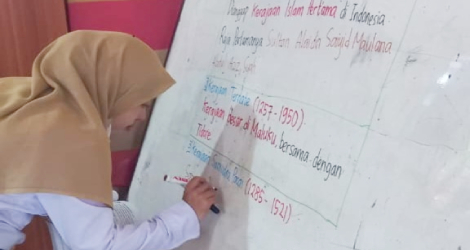 Dianggap Kerajaan Islam Pertama di Indonesia
Raja Pertamanya Sultan Alaidin Sayyid Maulana
Kerajaan Ternate (1257-1950)
Kerajaan Besar di Maluku, bersama dengan
Tidore
(1285-1521)